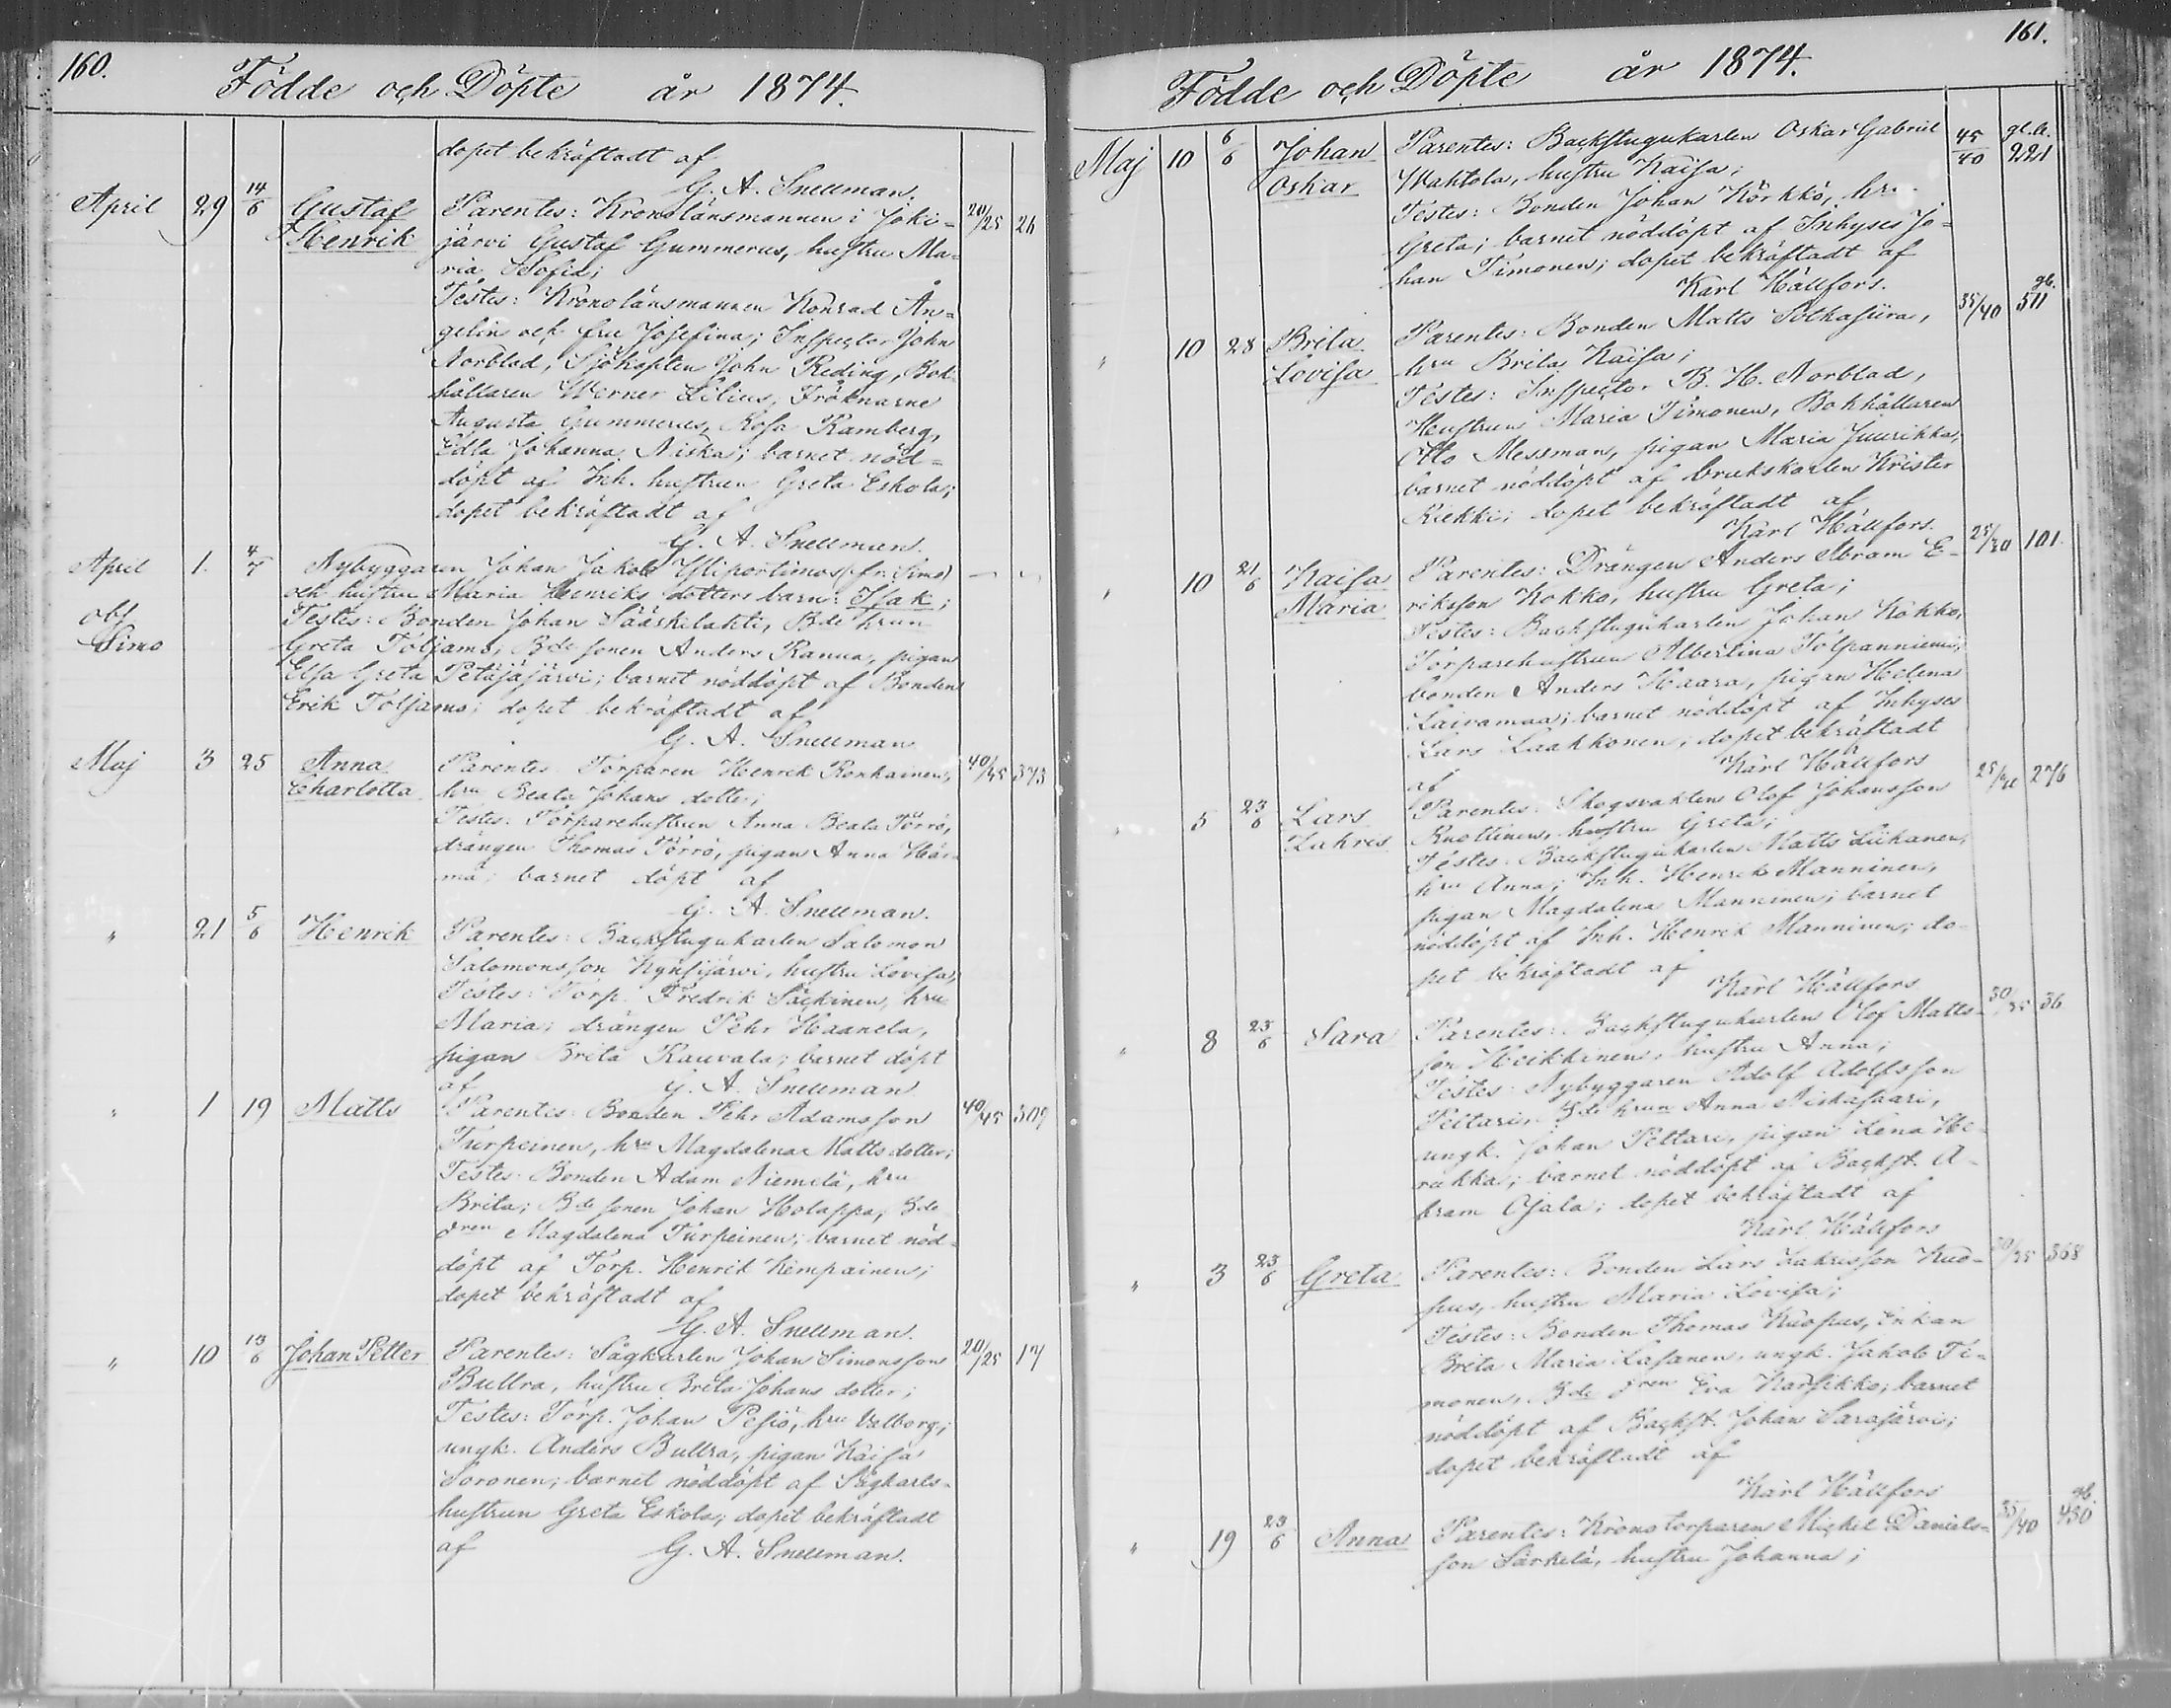 160.
Födde och Döpte år 1874.
dopet bekräftadt af
G. A. Snellman.
April 29 14/6 Gustaf Henrik Parentes: Kronolänsmannen i Joki- 20/25 26
järvi Gustaf Gummerus, hustru Ma-
ria Sofia;
Testes: Kronolänsmannen Konrad Ån-
gelin och fru Josefina; Inspector John
Norblad, Sjökapten John Reding, Bok-
hållaren Werner Lilius, Fröknarne
Augusta Gummerus, Rosa Ramberg,
Edla Johanna Niska; barnet nöd-
döpt af Inh. hustrun Greta Eskola;
dopet bekräftadt af
G. A. Snellman.
April 1. 4/7 Nybyggaren Johan Jakob Yliportimos (fr. Simo) —
och hustru Maria Henriks dotters barn: Isak;
obs Simo
Testes: Bonden Johan Sääskilahti, Bde hrun
Greta Töljamö, Bde sonen Anders Ranua, pigan
Elsa Greta Petäjäjärvi; barnet nöddöpt af Bonden
Erik Toljamo; dopet bekräftadt af
G. A. Snellman
Maj 3 25 Anna Charlotta Parentes Torparen Henrik Ronkainen, 40/45 373
hru Beata Johans dotter;
Testes: Torparehustrun Anna Beata Törrö,
drängen Thomas Törrö, pigan Anna Här-
mä; barnet döpt af
G. A. Snellman.
" 21 5/6 Henrik Parentes: Backstugukarlen Salomon
Salomonsson Kynsijärvi, hustru Lovisa,
Testes: Torp. Fredrik Säckinen, hru
Maria; drängen Pehr Haanela,
pigan Brita Kauvala; barnet döpt
af G. A. Snellman
" 1 19 Matts Parentes Bonden Pehr Adamsson 40/45 309
Turpeinen, hru Magdalena Matts dotter;
Testes Bonden Adam Niemelä, hru
Brita; Bde sonen Johan Holappa, Bde
dren Magdalena Turpeinen; barnet nöd-
döpt af Torp. Henrik Kempainen;
dopet bekräftadt af
G. A. Snellman.
" 10 13/6 Johan Petter Parentes: Sågkarlen Johan Simonsson 20/25 17
Bullra, hustru Brita Johans dotter;
Testes: Torp. Johan Pesiö, hru Valborg;
ungk. Anders Bullra, pigan Kaisa
Soronen; barnet nöddöpt af Sågkarls-
hustrun Greta Eskola; dopet bekräftadt
af G. A. Snellman.
161.
Födde och Döpte år 1874.
Maj 10 6/6 Johan Oskar Parentes: Backstugukarlen Oskar Gabriel 45/40 gl.b. 221
Wahtola, hustru Kaisa;
Testes: Bonden Johan Körkkö, hru
Greta; barnet nöddöpt af Inhyses Jo-
han Timonen; dopet bekräftadt af
Karl Hällfors.
" 10 28 Brita Lovisa Parentes: Bonden Matts Sotkasiira, 35/40 gb. 511
hru Brita Kaisa;
Testes: Inspector B. H. Norblad,
Hustrun Maria Timonen, Bokhållaren
Otto Messman, pigan Maria Juurikka;
barnet nöddöpt af brukskarlen Krister
Riekki; dopet bekräftadt af
Karl Hällfors.
" 10 21/6 Kaisa Maria Parentes: Drängen Anders Abram E- 25/30 101.
riksson Kokko, hustru Greta;
Testes: Backstugukarlen Johan Kokko,
Torparehustrun Albertina Tolpanniemi,
bonden Anders Haara, pigan Helena
Laivamaa; barnet nöddöpt af Inhyses
Lars Laakkonen; dopet bekräftadt
af Karl Hällfors
" 5 23/6 Lars Zakris Parentes: Skogsvakten Olof Johansson 276
Ruottinen, hustru Greta;
Testes Backstugukarlen Matts Liikanen,
hru Anna; Inh. Henrik Manninen,
pigan Magdalena Manninen; barnet
nöddöpt af Inh. Henrik Manninen; do-
pet bekräftadt af
Karl Hällfors
" 8 23/6 Sara Parentes: Backstugukarlen Olof Matts- 30/35 36
son Heikkinen, hustru Anna;
Testes Nybyggaren Adolf Adolfsson
Peltari, Bde hrun Anna Niskasaari,
ungk. Johan Peltari, pigan Lena He-
rukka; barnet nöddöpt af Backst. A-
bram Ojala; dopet bekräftadt af
Karl Hällfors
" 3 23/6 Greta Parentes: Bonden Lars Zakrisson Kuo- 30/35 368
pus, hustru Maria Lovisa;
Testes: Bonden Thomas Kuopus, Enkan
Brita Maria Lasanen, ungk. Jakob Ti-
monen, Bde dren Eva Karsikko; barnet
nöddöpt af Backst. Johan Sarajärvi;
dopet bekräftadt af
Karl Hällfors
" 19 23/6 Anna Parentes: Kronotorparen Mickel Daniels- 35/40 gb. 430
son Särkelä, hustru Johanna;